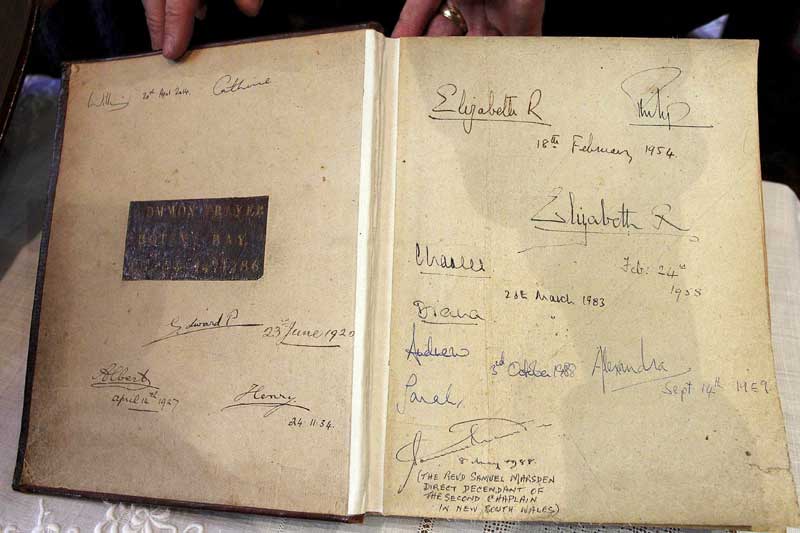 20th April 2014. Catherine
COMMON PRAYER
BOTANY BAY
Edward P 23rd June 1920
Albert
April 12th 1927
Henry
24.11.34.
Elizabeth R Philip
18th February 1954.
Elizabeth R
Feb: 24th
1958
Charles
28th March 1983
Diana "
Andrew 3rd October 1988
Sarah,
Alexandra
Sept 14th
8 May 1988.
(THE REVD SAMUEL MARSDEN
DIRECT DECENDANT OF
THE SECOND CHAPLAIN
IN NEW SOUTH WALES)